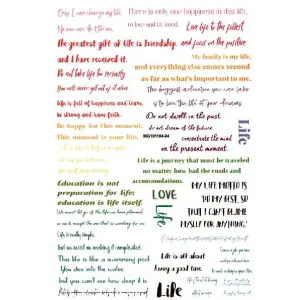 Only I can change my life.
No one can do it for me.
The greatest gift of life is friendship,
and I have received it.
Do not take life too seriously.
You will never get out of it alive.
Life is full of happiness and tears,
be strong and have faith.
Be happy for this moment.
This moment is your life.
Education is not
preparation for life;
education is life itself.
We must let go of the life we have planned,
so as to accept the one that is waiting for us.
Life is really simple,
but we insist on making it complicated.
This life is like a swimming pool.
You dive into the water,
but you can't see how deep it is.
There is only one happiness in this life,
to love and be loved.
Live life to the fullest,
and focus on the positive.
My family is my life,
and everything else comes second
as far as what's important to me.
The biggest adventure you can take
is to live the life of your dreams.
Do not dwell in the past,
do not dream of the future,
concentrate the mind
on the present moment.
Life
Life is a journey that must be traveled
no matter how bad the roads and
accommodations.
LOVE
Life
MY LIFE MOTTO IS
'DO MY BEST, SO
THAT I CAN'T BLAME
MYSELF FOR ANYTHING.'
Life is all about
having a good time.
Life